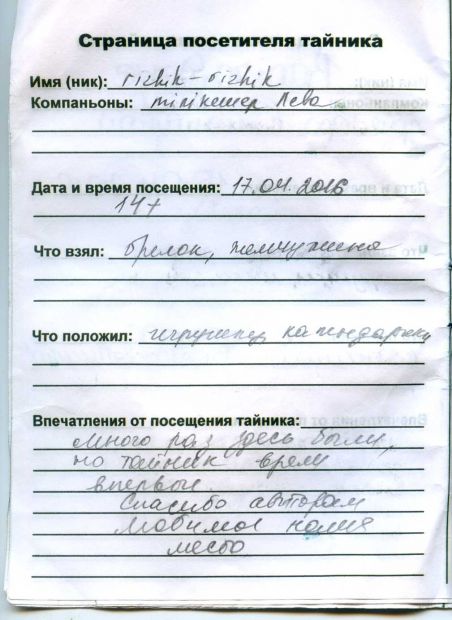 Страница посетителя тайника
Имя (ник): rizhik-rizhik
Компаньоны: минікешер Лева
Дата и время посещения: 17.04.2016
14+
Что взял: брелок, жемчужина
Что положил: игрушку, календарики
Впечатления от посещения тайника:
Много раз здесь были,
но тайник взяли
впервые.
Спасибо авторам
Любимое наше
место